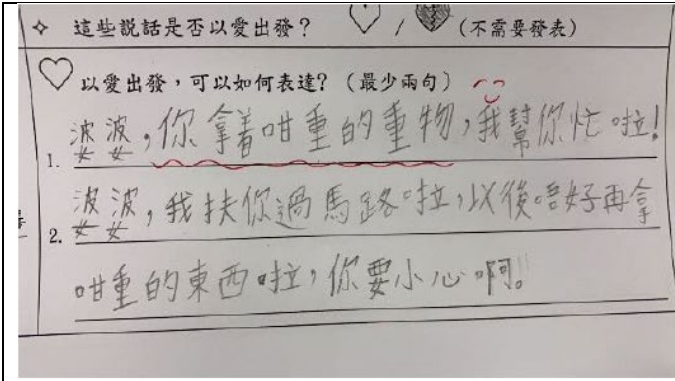 ✧ 這些說話是否以愛出發？ / (不需要發表)
以愛出發，可以如何表達? （最少兩句）
1. 婆婆，你拿着咁重的重物，我幫你忙啦！
2. 婆婆，我扶你過馬路啦，以後唔好再拿
咁重的東西啦，你要小心啊。